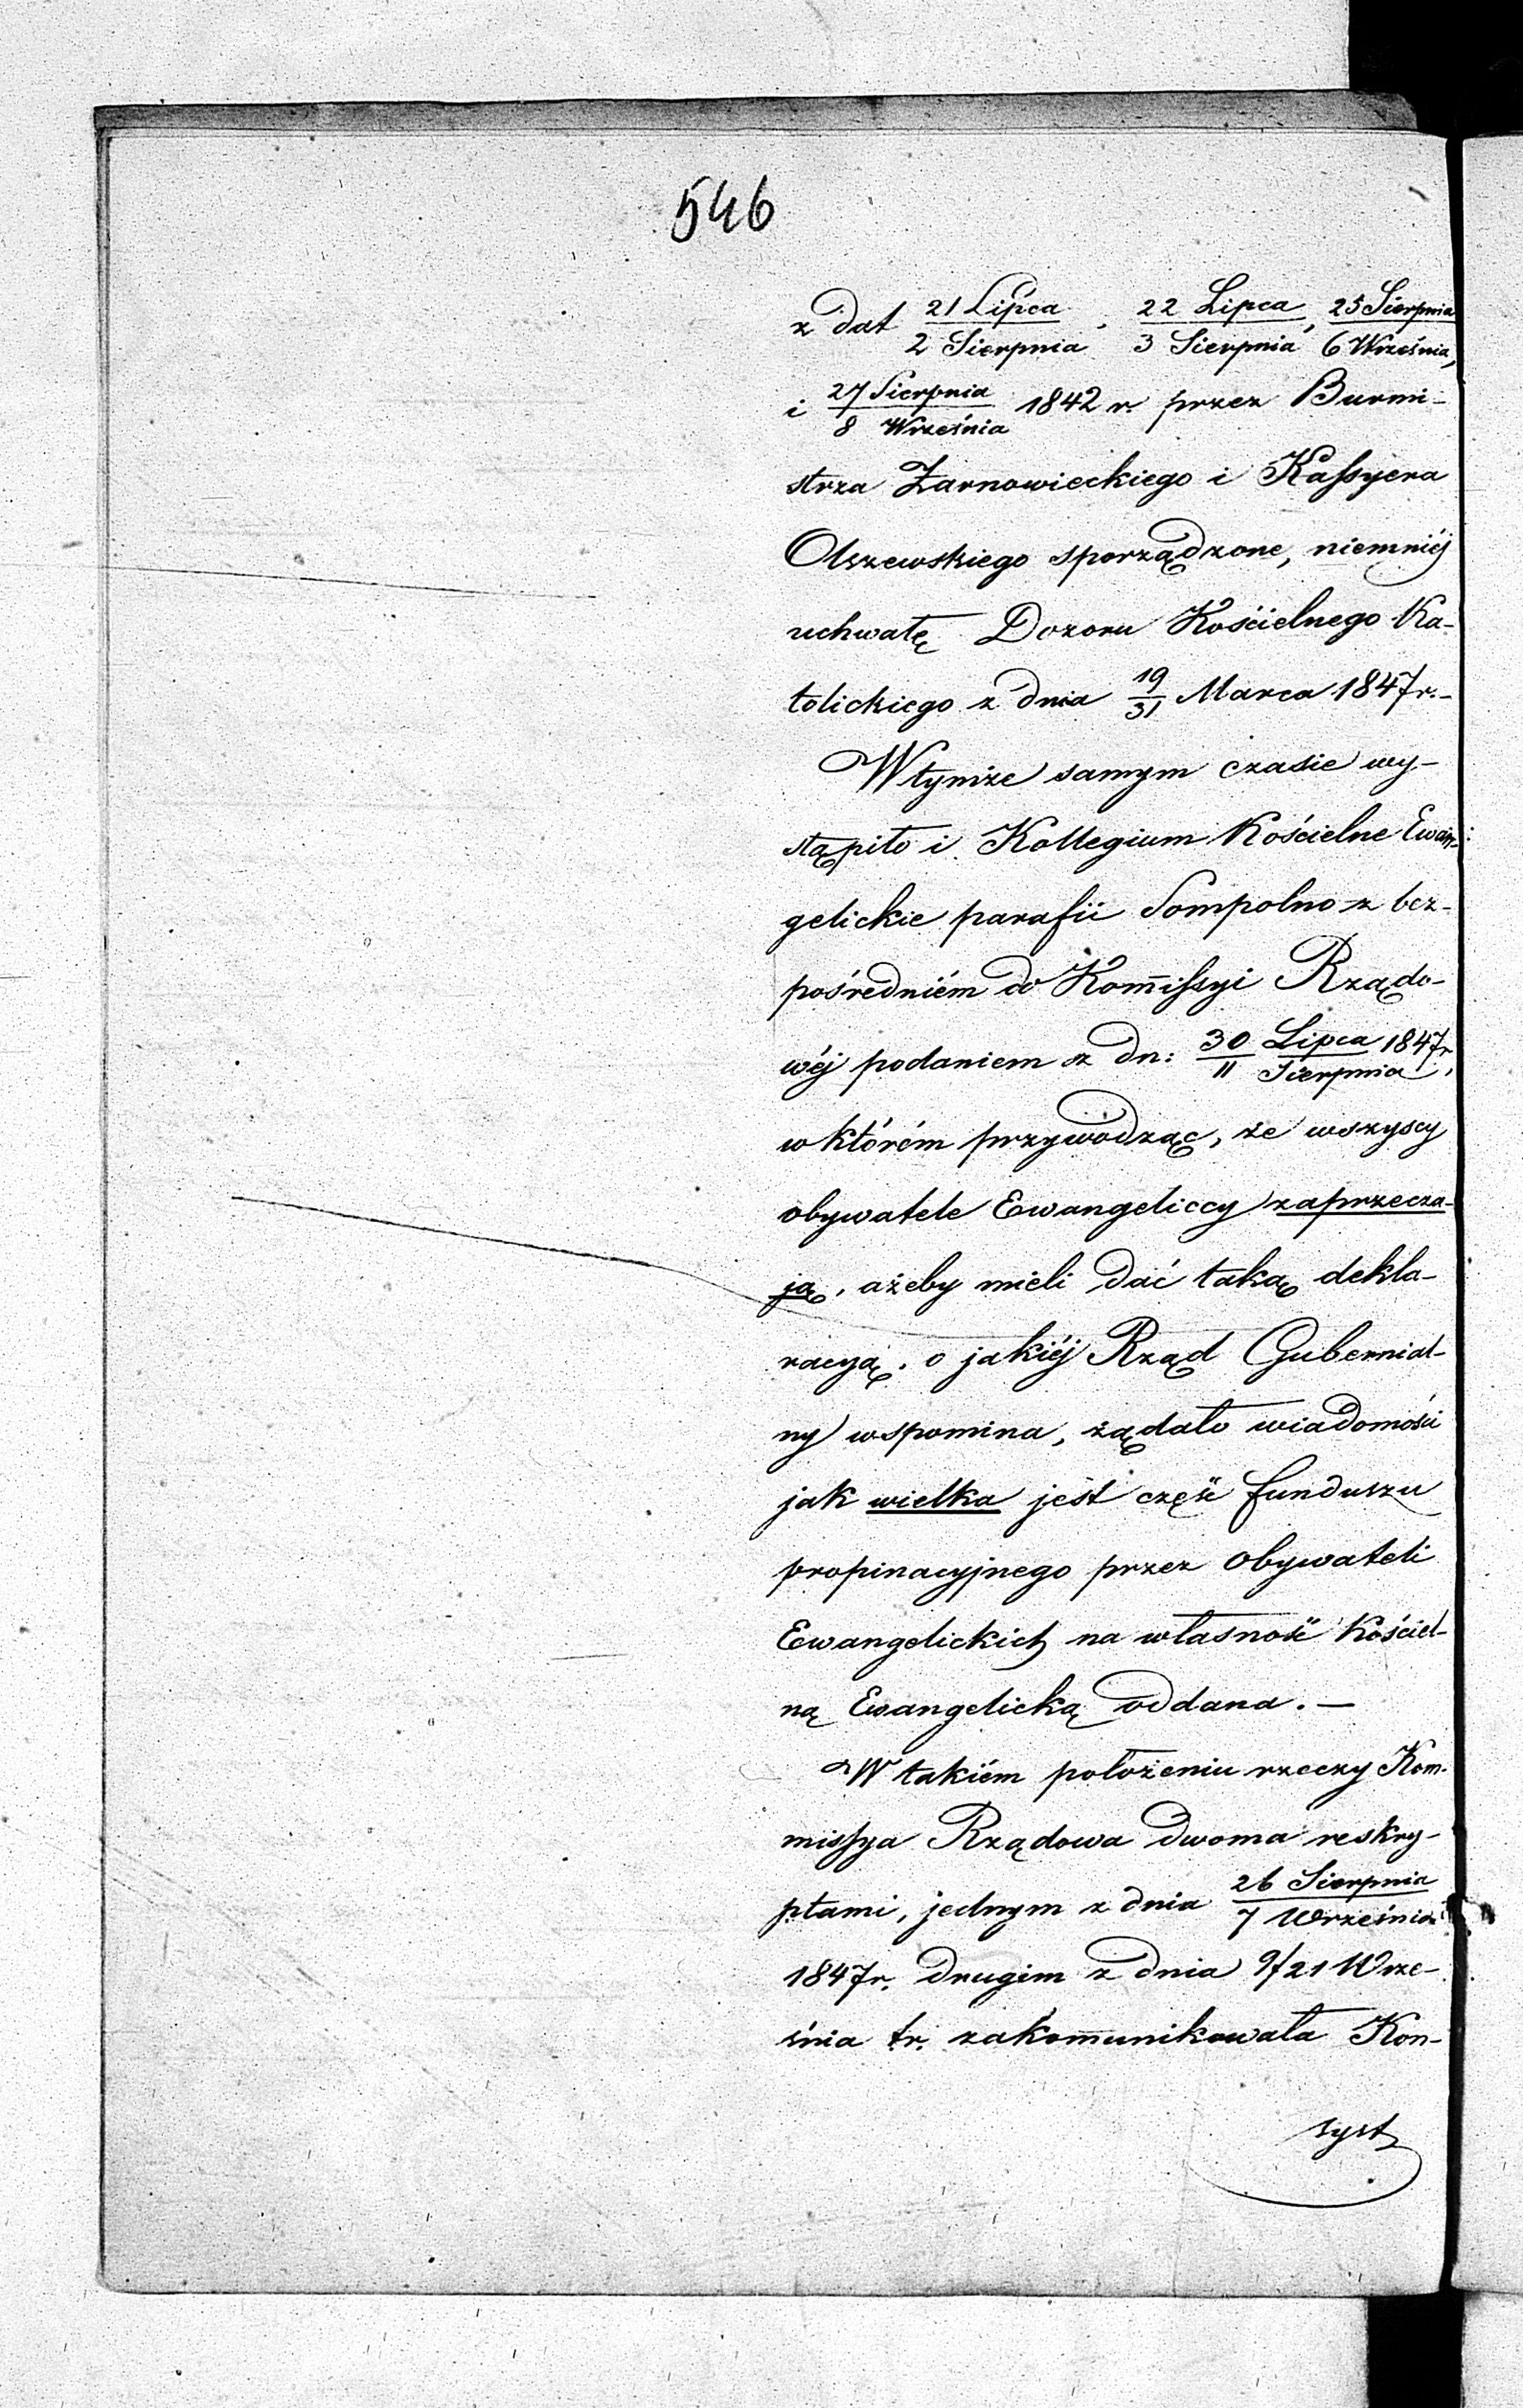 546
z dat 21 Lipca / 2 Sierpnia, 22 Lipca / 3 Sierpnia, 25 Sierpnia / 6 Września,
i 27 Sierpnia / 8 Września 1842 r. przez Burmi-
strza Żarnowieckiego i Kassyera
Olszewskiego sporządzone, niemniéj
uchwałę Dozoru Kościelnego Ka-
tolickiego z dnia 19/31 Marca 1847 r.-
W tymże samym czasie wy-
stąpiło i Kollegium Kościelne Ewan-
gelickie parafii Sompolno z bez-
pośredniém do Kommissyi Rządo-
wéj podaniem z dn: 30 Lipca / 11 Sierpnia 1847 r,
w którém przywodząc, że wszyscy
obywatele Ewangeliccy zaprzecza-
ją, ażeby mieli dać taką dekla-
racyą, o jakiéj Rząd Gubernial-
ny wspomina, żądało wiadomości
jak wielka jest część funduszu
propinacyjnego przez obywateli
Ewangelickich na własność Kościel-
ną Ewangelicką oddana. —
W takiém położeniu rzeczy Kom-
missya Rządowa dwoma reskry-
ptami, jednym z dnia 26 Sierpnia / 7 Września
1847 r. drugim z dnia 9/21 Wrze-
śnia t.r. zakommunikowała Kon-
syst